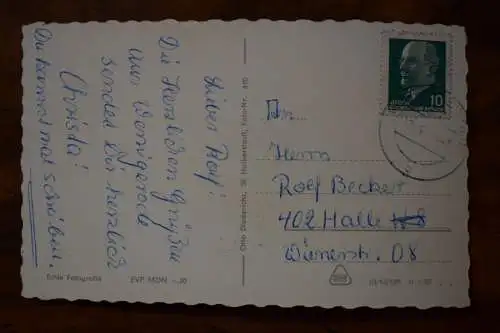 Lieber Rolf!
Die Herzlichen Grüße
aus Wernigerode
sendet Dir herzlich
Christa!
Du kannst mal schreiben.
Echte Fotografie
EVP MDN -.20
Otto Diederichs, 36 Halberstadt, Foto-Nr.
An
Herrn
Rolf Becker
402 Halle
Wienerstr. 08
10